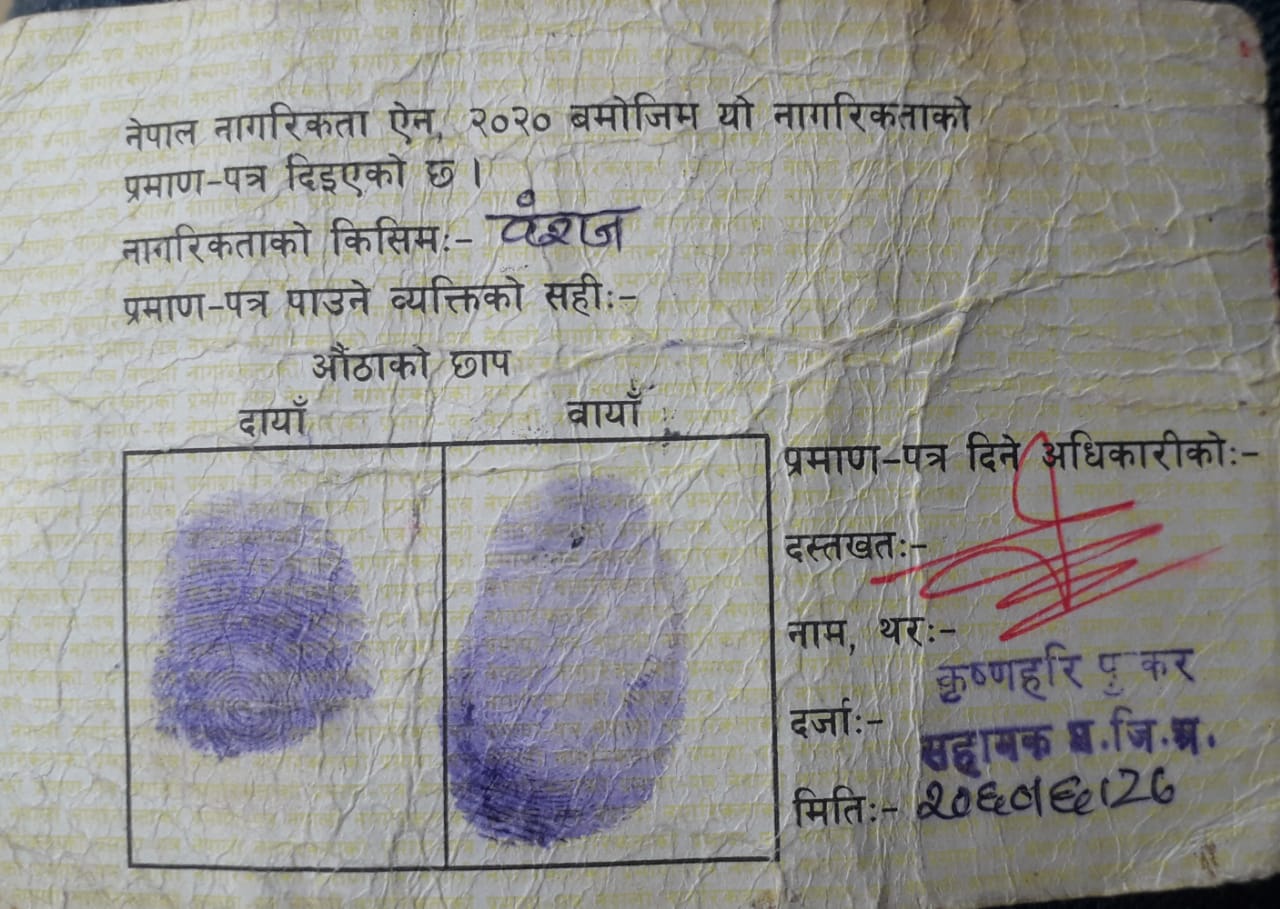 नेपाल नागरिकता ऐन, २०२० बमोजिम यो नागरिकताको
प्रमाण-पत्र दिइएको छ ।
नागरिकताको किसिम:- वंशज
प्रमाण-पत्र पाउने व्यक्तिको सही:-
औंठाको छाप
दायाँ वायाँ
प्रमाण-पत्र दिने अधिकारीको:-
दस्तखत:-
नाम, थर:-
कृष्णहरि
दर्जा:-
सहायक प्र.जि.अ.
मिति:-